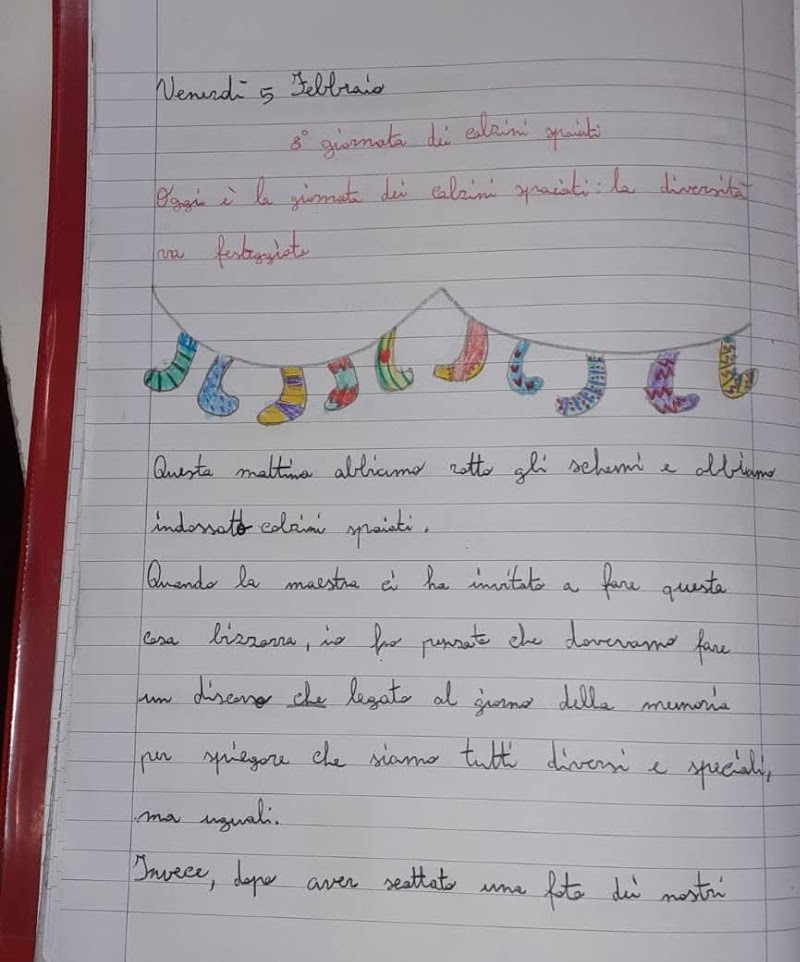 Venerdì 5 Febbraio
8° giornata dei calzini spaiati
Oggi è la giornata dei calzini spaiati: la diversità
va festeggiata
Questa mattina abbiamo rotto gli schemi e abbiamo
indossato calzini spaiati.
Quando la maestra ci ha invitato a fare questa
cosa bizzarra, io ho pensato che dovevamo fare
un discorso che legato al giorno della memoria
per spiegare che siamo tutti diversi e speciali,
ma uguali.
Invece, dopo aver scattato una foto dei nostri